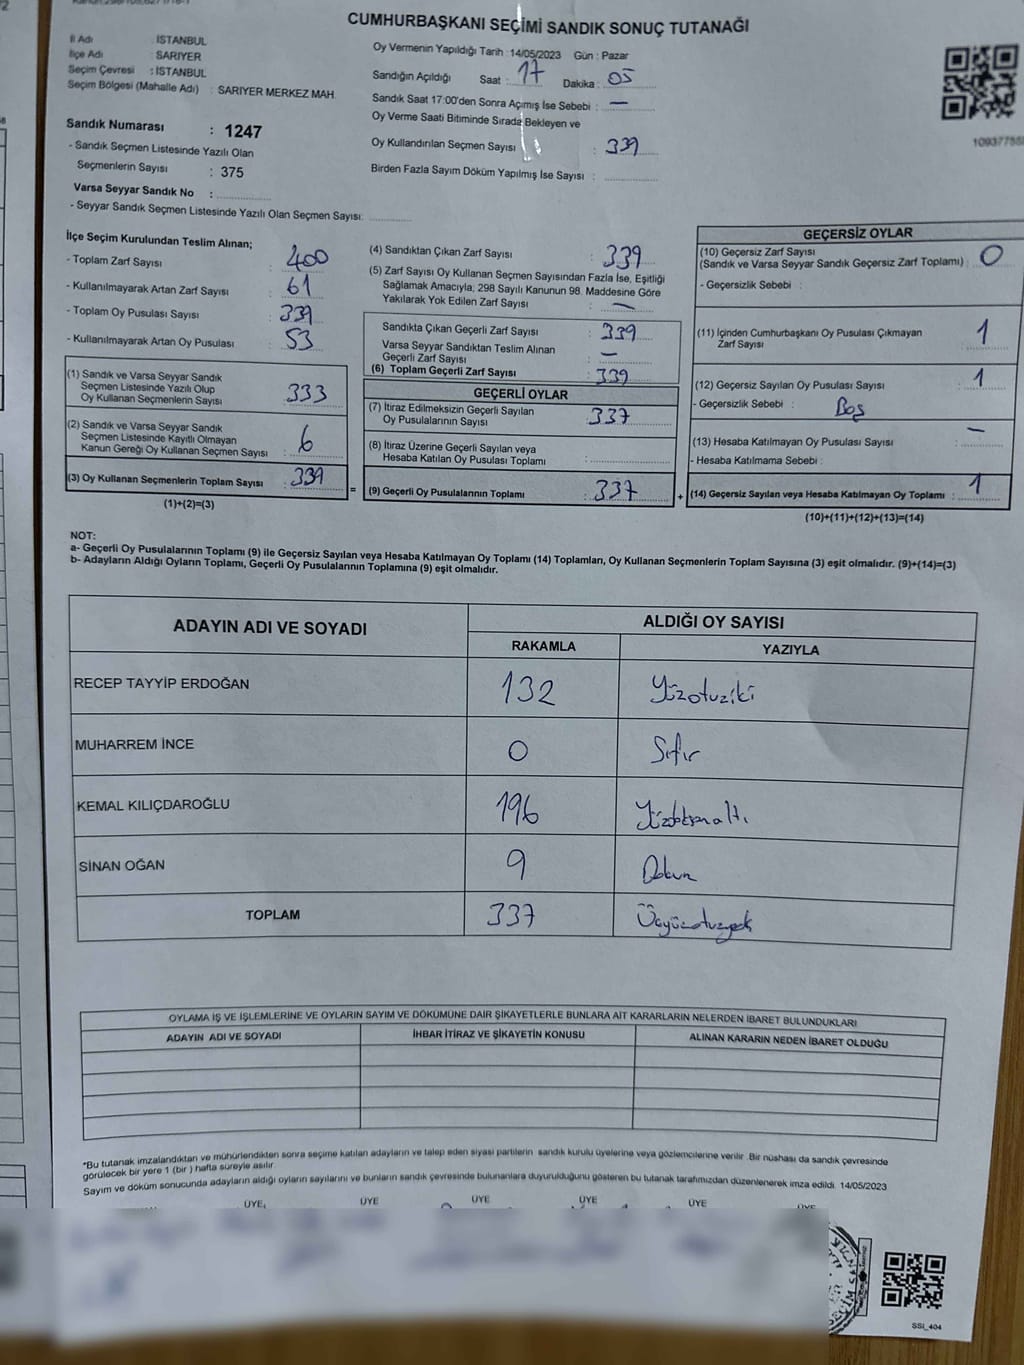 CUMHURBAŞKANI SEÇİMİ SANDIK SONUÇ TUTANAĞI
İl Adı : İSTANBUL
İlçe Adı : SARIYER
Seçim Çevresi : İSTANBUL
Seçim Bölgesi (Mahalle Adı) : SARIYER MERKEZ MAH.
Oy Vermenin Yapıldığı Tarih : 14/05/2023 Gün : Pazar
Sandığın Açıldığı Saat : 17 Dakika : 05
Sandık Saat 17:00'den Sonra Açımış İse Sebebi : —
Oy Verme Saati Bitiminde Sırada Bekleyen ve
Oy Kullandırılan Seçmen Sayısı : 339
Birden Fazla Sayım Döküm Yapılmış İse Sayısı :
Sandık Numarası : 1247
- Sandık Seçmen Listesinde Yazılı Olan
Seçmenlerin Sayısı : 375
Varsa Seyyar Sandık No :
- Seyyar Sandık Seçmen Listesinde Yazılı Olan Seçmen Sayısı:
İlçe Seçim Kurulundan Teslim Alınan;
- Toplam Zarf Sayısı : 400
- Kullanılmayarak Artan Zarf Sayısı : 61
- Toplam Oy Pusulası Sayısı : 339
- Kullanılmayarak Artan Oy Pusulası : 53
(1) Sandık ve Varsa Seyyar Sandık
Seçmen Listesinde Yazılı Olup
Oy Kullanan Seçmenlerin Sayısı : 333
(2) Sandık ve Varsa Seyyar Sandık
Seçmen Listesinde Kayıtlı Olmayan
Kanun Gereği Oy Kullanan Seçmen Sayısı : 6
(3) Oy Kullanan Seçmenlerin Toplam Sayısı : 339
(1)+(2)=(3)
(4) Sandıktan Çıkan Zarf Sayısı : 339
(5) Zarf Sayısı Oy Kullanan Seçmen Sayısından Fazla İse, Eşitliği
Sağlamak Amacıyla, 298 Sayılı Kanunun 98. Maddesine Göre
Yakılarak Yok Edilen Zarf Sayısı : —
Sandıkta Çıkan Geçerli Zarf Sayısı : 339
Varsa Seyyar Sandıktan Teslim Alınan
Geçerli Zarf Sayısı : —
(6) Toplam Geçerli Zarf Sayısı : 339
GEÇERLİ OYLAR
(7) İtiraz Edilmeksizin Geçerli Sayılan
Oy Pusulalarının Sayısı : 337
(8) İtiraz Üzerine Geçerli Sayılan veya
Hesaba Katılan Oy Pusulası Toplamı :
= (9) Geçerli Oy Pusulalarının Toplamı : 337
GEÇERSİZ OYLAR
(10) Geçersiz Zarf Sayısı
(Sandık ve Varsa Seyyar Sandık Geçersiz Zarf Toplamı) : 0
- Geçersizlik Sebebi :
(11) İçinden Cumhurbaşkanı Oy Pusulası Çıkmayan
Zarf Sayısı : 1
(12) Geçersiz Sayılan Oy Pusulası Sayısı : 1
- Geçersizlik Sebebi : Boş
(13) Hesaba Katılmayan Oy Pusulası Sayısı : —
- Hesaba Katılmama Sebebi :
+ (14) Geçersiz Sayılan veya Hesaba Katılmayan Oy Toplamı : 1
(10)+(11)+(12)+(13)=(14)
NOT:
a- Geçerli Oy Pusulalarının Toplamı (9) ile Geçersiz Sayılan veya Hesaba Katılmayan Oy Toplamı (14) Toplamları, Oy Kullanan Seçmenlerin Toplam Sayısına (3) eşit olmalıdır. (9)+(14)=(3)
b- Adayların Aldığı Oyların Toplamı, Geçerli Oy Pusulalarının Toplamına (9) eşit olmalıdır.
ADAYIN ADI VE SOYADI ALDIĞI OY SAYISI
RAKAMLA YAZIYLA
RECEP TAYYİP ERDOĞAN 132 Yüzotuziki
MUHARREM İNCE 0 Sıfır
KEMAL KILIÇDAROĞLU 196 Yüzdoksanaltı
SİNAN OĞAN 9 Dokuz
TOPLAM 337 Üçyüzotuzyedi
OYLAMA İŞ VE İŞLEMLERİNE VE OYLARIN SAYIM VE DÖKÜMÜNE DAİR ŞİKAYETLERLE BUNLARA AİT KARARLARIN NELERDEN İBARET BULUNDUKLARI
ADAYIN ADI VE SOYADI İHBAR İTİRAZ VE ŞİKAYETİN KONUSU ALINAN KARARIN NEDEN İBARET OLDUĞU
*Bu tutanak imzalandıktan ve mühürlendikten sonra seçime katılan adayların ve talep eden siyasi partilerin sandık kurulu üyelerine veya gözlemcilerine verilir. Bir nüshası da sandık çevresinde
görülecek bir yere 1 (bir) hafta süreyle asılır.
Sayım ve döküm sonucunda adayların aldığı oyların sayılarını ve bunların sandık çevresinde bulunanlara duyurulduğunu gösteren bu tutanak tarafımızdan düzenlenerek imza edildi. 14/05/2023
ÜYE ÜYE ÜYE ÜYE ÜYE ÜYE
SSI_404